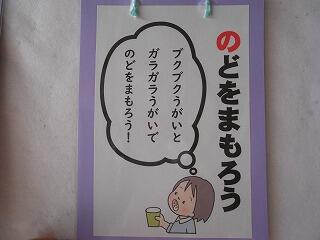 のどをまもろう
ブクブクうがいと
ガラガラうがいで
のどをまもろう！